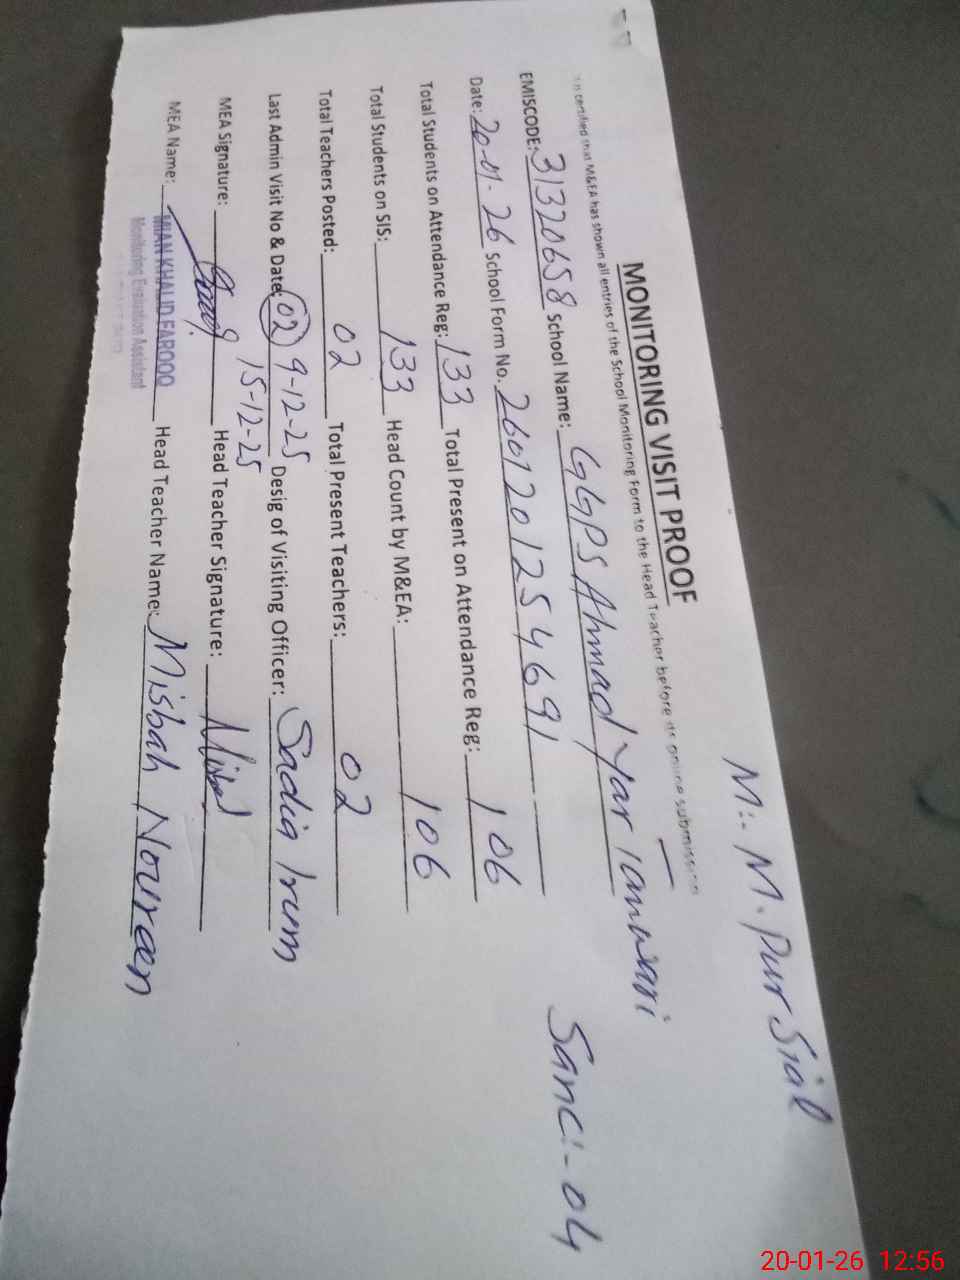 M:- M. Pur Sial
MONITORING VISIT PROOF
It is certified that M&EA has shown all entries of the School Monitoring Form to the Head Teacher before its online submission
EMISCODE: 31320658 School Name: GGPS Ahmad Yar Tanwari
Sanc:- 04
Date: 20-01-26 School Form No. 2601201254691
Total Students on Attendance Reg: 133 Total Present on Attendance Reg: 106
Total Students on SIS: 133 Head Count by M&EA: 106
Total Teachers Posted: 02 Total Present Teachers: 02
Last Admin Visit No & Date: 02 9-12-25 Desig of Visiting Officer: Sadia Irum
15-12-25
MEA Signature: Head Teacher Signature: Misbah
MEA Name: MIAN KHALID FAROOQ Head Teacher Name: Misbah Noureen
Monitoring Evaluation Assistant
20-01-26 12:56